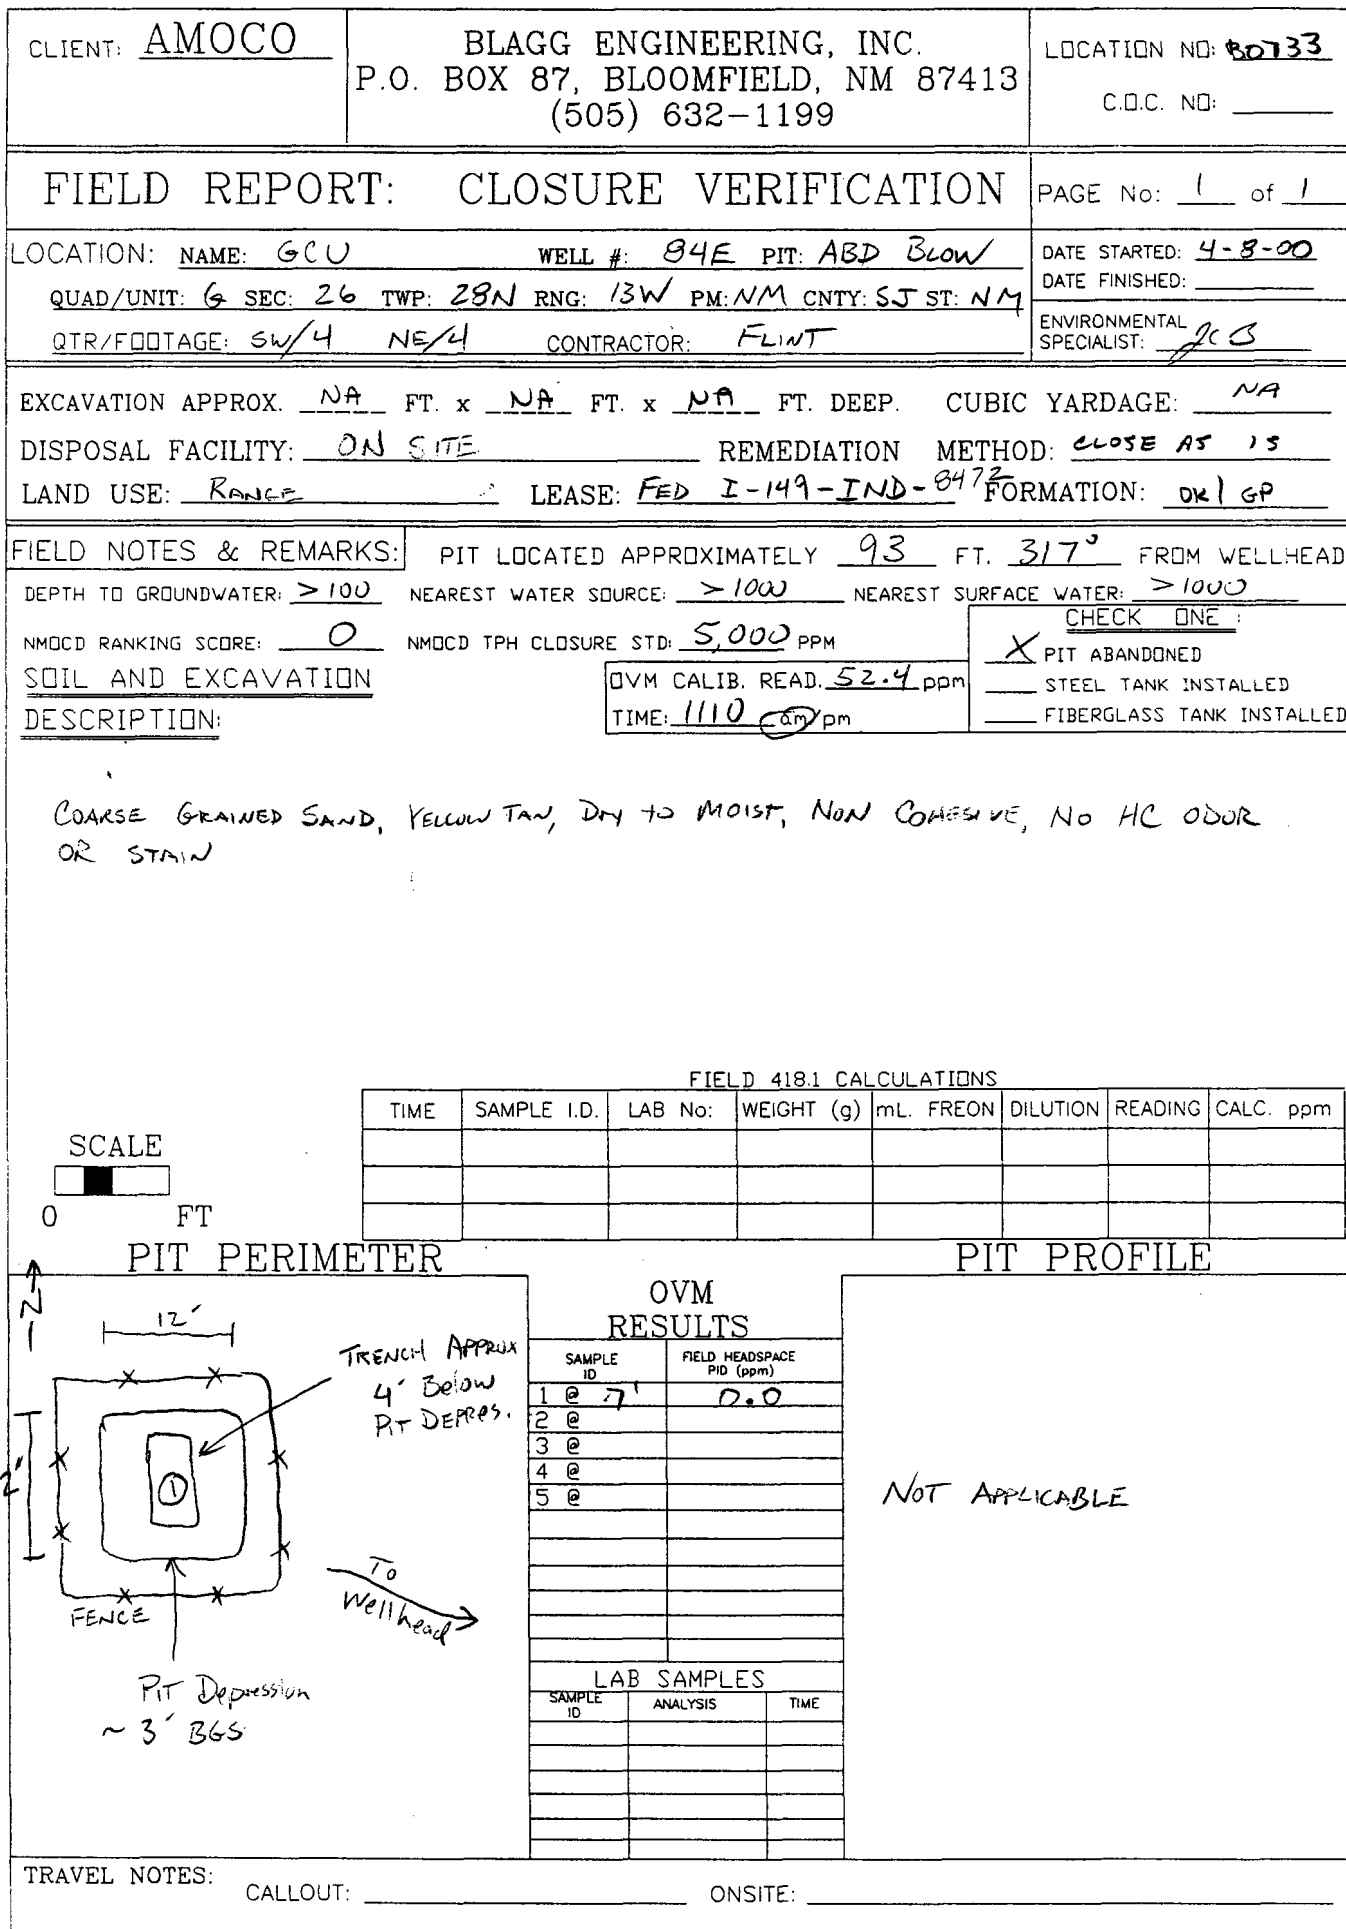 CLIENT: AMOCO
BLAGG ENGINEERING, INC.
P.O. BOX 87, BLOOMFIELD, NM 87413
(505) 632-1199
LOCATION NO: B0733
C.O.C. NO:
FIELD REPORT: CLOSURE VERIFICATION
PAGE No: 1 of 1
LOCATION: NAME: GCU WELL #: 84E PIT: ABD BLOW
QUAD/UNIT: G SEC: 26 TWP: 28N RNG: 13W PM: NM CNTY: SJ ST: NM
QTR/FOOTAGE: SW/4 NE/4 CONTRACTOR: FLINT
DATE STARTED: 4-8-00
DATE FINISHED:
ENVIRONMENTAL
SPECIALIST: JCB
EXCAVATION APPROX. NA FT. x NA FT. x NA FT. DEEP. CUBIC YARDAGE: NA
DISPOSAL FACILITY: ON SITE REMEDIATION METHOD: CLOSE AS IS
LAND USE: RANGE LEASE: FED I-149-IND-8472 FORMATION: DK/GP
FIELD NOTES & REMARKS: PIT LOCATED APPROXIMATELY 93 FT. 317° FROM WELLHEAD
DEPTH TO GROUNDWATER: >100 NEAREST WATER SOURCE: >1000 NEAREST SURFACE WATER: >1000
NMOCD RANKING SCORE: 0 NMOCD TPH CLOSURE STD: 5,000 PPM
CHECK ONE :
X PIT ABANDONED
STEEL TANK INSTALLED
FIBERGLASS TANK INSTALLED
SOIL AND EXCAVATION
DESCRIPTION:
OVM CALIB. READ. 52.4 ppm
TIME: 1110 am/pm
COARSE GRAINED SAND, YELLOW TAN, DRY TO MOIST, NON COHESIVE, NO HC ODOR
OR STAIN
FIELD 418.1 CALCULATIONS
TIME SAMPLE I.D. LAB No: WEIGHT (g) mL. FREON DILUTION READING CALC. ppm
SCALE
0 FT
PIT PERIMETER
PIT PROFILE
N
12'
TRENCH APPROX
4' Below
PIT DEPRES.
2'
1
FENCE
To
Wellhead
PIT Depression
~ 3' BGS
OVM
RESULTS
SAMPLE
ID
FIELD HEADSPACE
PID (ppm)
1 @ 7' 0.0
2 @
3 @
4 @
5 @
NOT APPLICABLE
LAB SAMPLES
SAMPLE
ID
ANALYSIS TIME
TRAVEL NOTES:
CALLOUT: ONSITE: